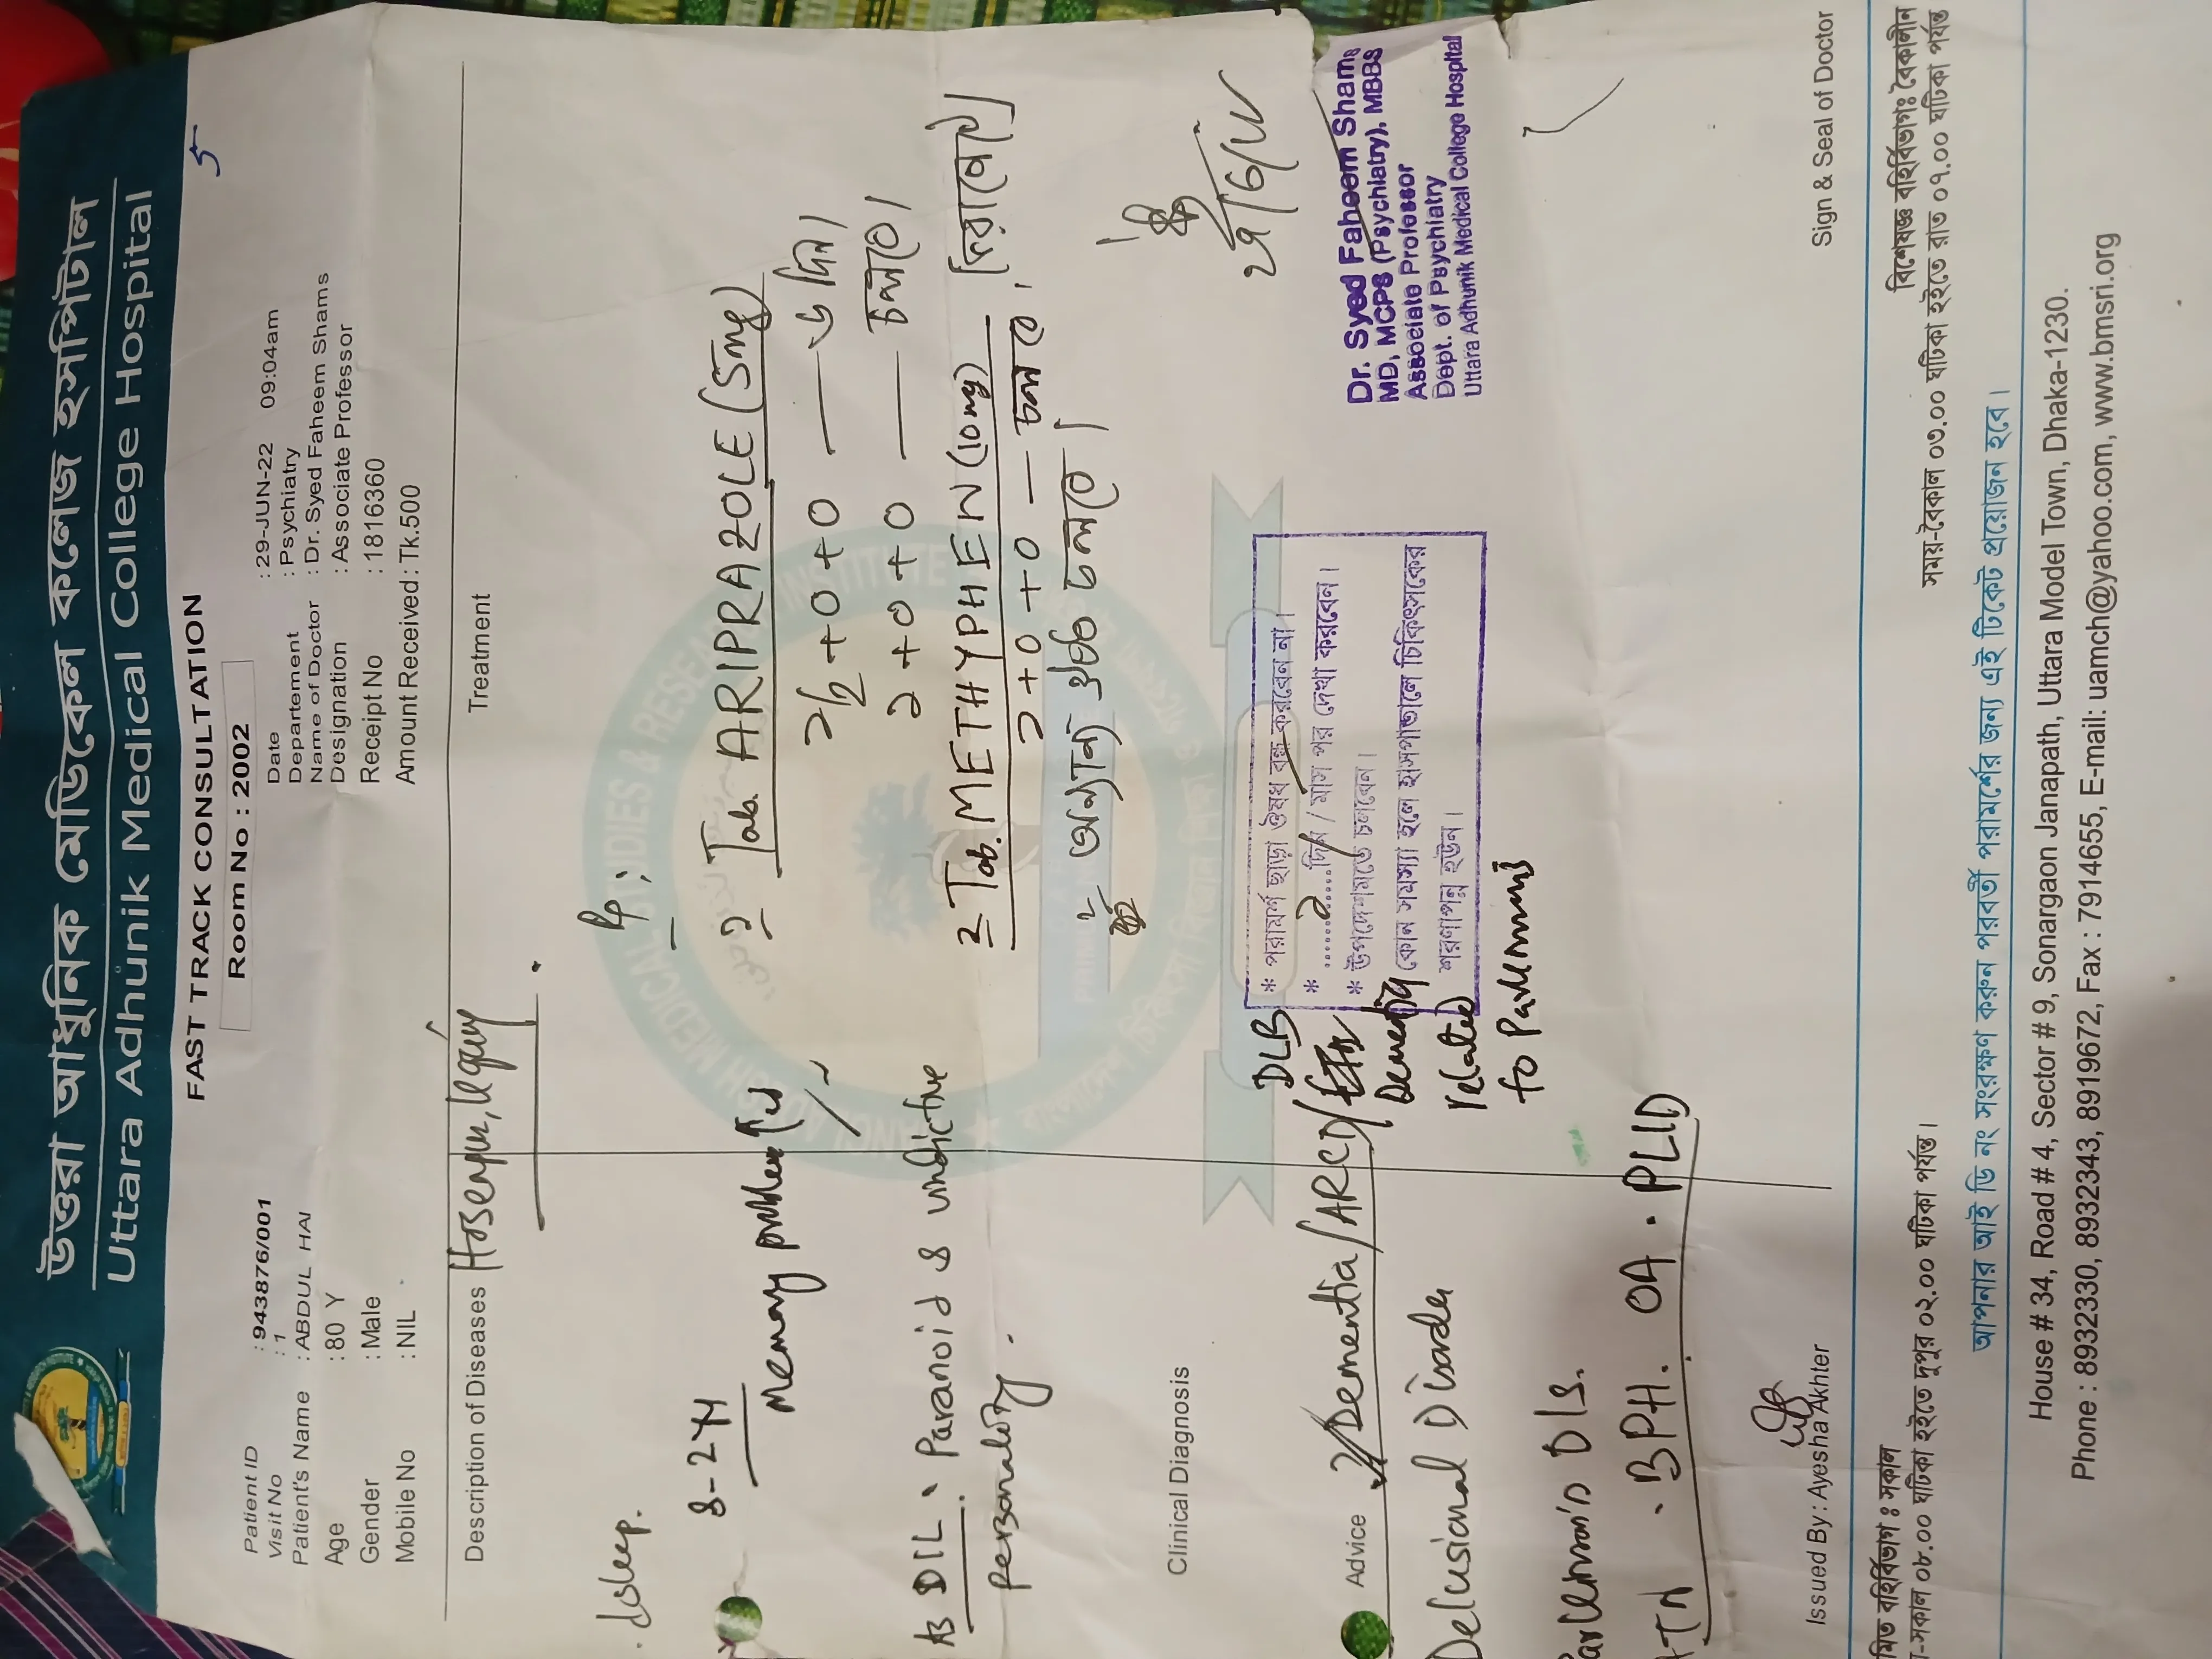 উত্তরা আধুনিক মেডিকেল কলেজ হসপিটাল
Uttara Adhunik Medical College Hospital
FAST TRACK CONSULTATION
5
Room No : 2002
Patient ID : 943876/001
Visit No : 1
Patient's Name : ABDUL HAI
Age : 80 Y
Gender : Male
Mobile No : NIL
Date : 29-JUN-22 09:04am
Departement : Psychiatry
Name of Doctor : Dr. Syed Faheem Shams
Designation : Associate Professor
Receipt No : 1816360
Amount Received : Tk.500
Description of Diseases
Treatment
sleep.
Memory problem
DIL. Paranoid & vindictive
Personality.
Clinical Diagnosis
Advice
Dementia/ARCD/
DLB
Dementia
related
to Parkinsons
Delusional Disorder
Parkinson's DIS.
HTN . BPH. OA . PLID
Rx:
১ Tab. ARIPRAZOLE (5mg)
১/২ + ০ + ০ — ৬ দিন।
১ + ০ + ০ — চলবে।
২ Tab. METHYPHEN (10mg)
১ + ০ + ০ — চলবে।
অন্যান্য ঔষধ চলবে।
২৯/৬/২২
* পরামর্শ ছাড়া ঔষধ বন্ধ করবেন না।
* ......২....দিন / মাস পর দেখা করবেন।
* উপদেশমতে চলবেন।
কোন সমস্যা হলে হাসপাতালে চিকিৎসকের
শরণাপন্ন হউন।
Dr. Syed Faheem Shams
MD, MCPS (Psychiatry), MBBS
Associate Professor
Dept. of Psychiatry
Uttara Adhunik Medical College Hospital
Issued By : Ayesha Akhter
Sign & Seal of Doctor
বহির্বিভাগ ঃ সকাল
সকাল ০৮.০০ ঘটিকা হইতে দুপুর ০২.০০ ঘটিকা পর্যন্ত।
বিশেষজ্ঞ বহির্বিভাগঃ বৈকালীন
সময়-বৈকাল ০৩.০০ ঘটিকা হইতে রাত ০৭.০০ ঘটিকা পর্যন্ত
আপনার আই ডি নং সংরক্ষণ করুন পরবর্তী পরামর্শের জন্য এই টিকেট প্রয়োজন হবে।
House # 34, Road # 4, Sector # 9, Sonargaon Janapath, Uttara Model Town, Dhaka-1230.
Phone : 8932330, 8932343, 8919672, Fax : 7914655, E-mail: uamch@yahoo.com, www.bmsri.org